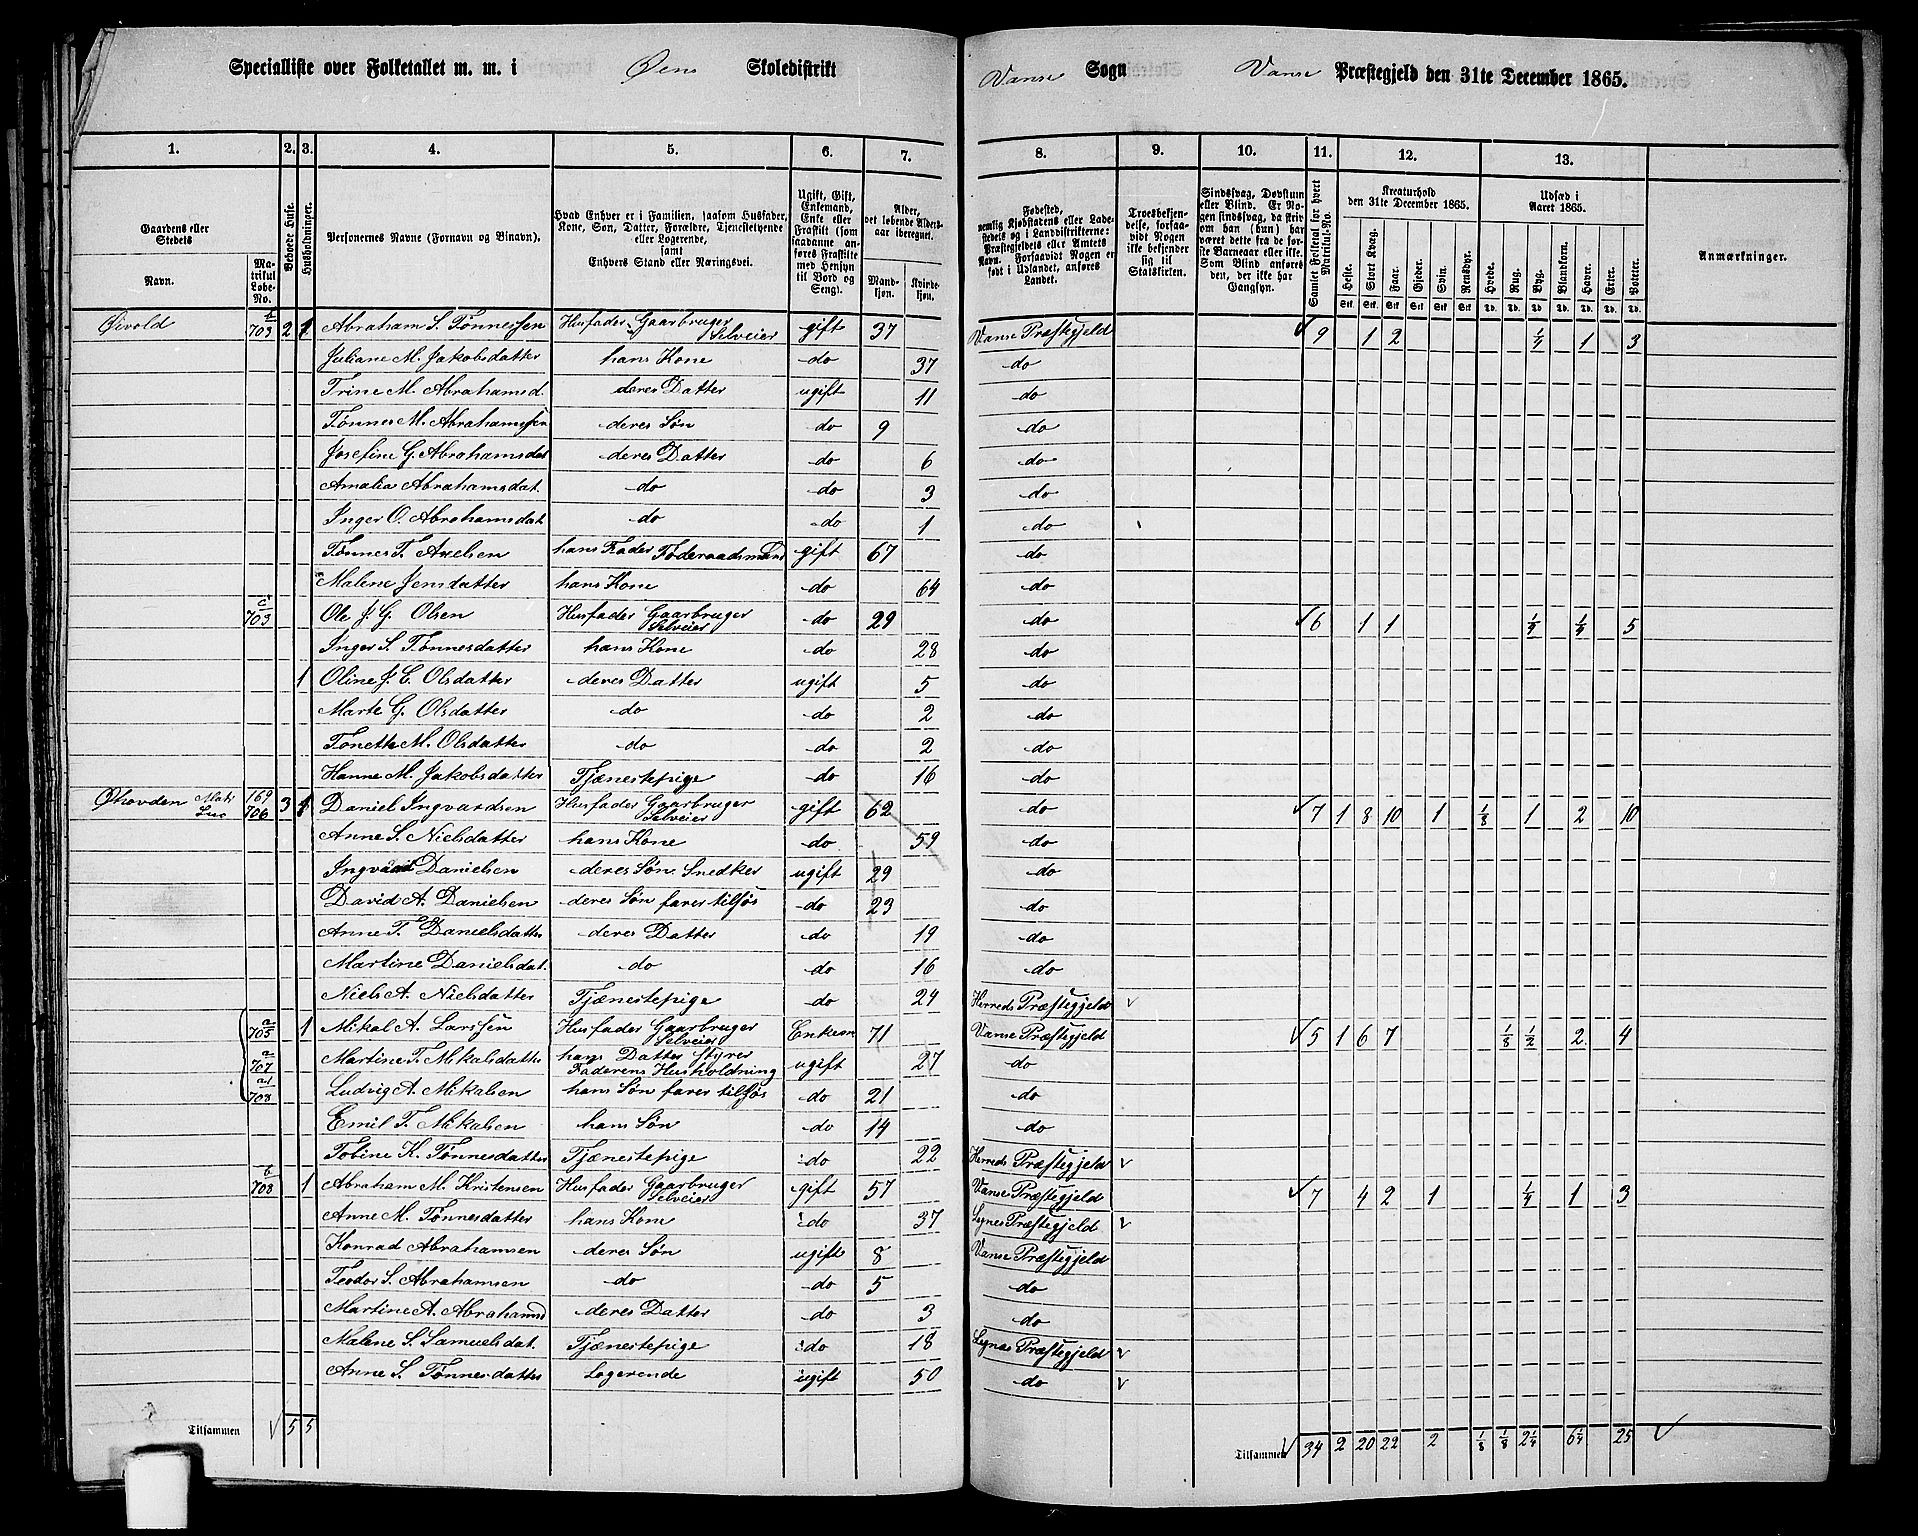 Specialliste over Folketallet m. m. i Øens Skoledistrikt Vanse Sogn Vanse Præstegjeld den 31te December 1865.
1. 2. 3. 4. 5. 6. 7. 8. 9. 10. 11. 12. 13.
Gaardens eller Stedets
Navn.
Matrikul Løbe-No.
Beboede Huse.
Husholdninger.
Personernes Navne (Fornavn og Binavn).
Hvad Enhver er i Familien, saasom Husfader, Kone, Søn, Datter, Forældre, Tjenestetyende eller Logerende, samt Enhvers Stand eller Næringsvei.
Ugift, Gift, Enkemand, Enke eller Fraskilt (som saadanne anføres Fraskilte med Hensyn til Bord og Seng).
Alder, det løbende Aldersaar iberegnet.
Mandkjøn. Kvindekjøn.
Fødested, nemlig Kjøbstadens eller Ladestedets og i Landdistrikterne: Præstegjeldets eller Amtets Navn. Forsaavidt Nogen er født i Udlandet, anføres Landet.
Troesbekjendelse, forsaavidt Nogen ikke bekjender sig til Statskirken.
Sindssvag, Døvstum eller Blind. Er Nogen sindssvag, da skrives om han (hun) har været dette fra de første Barneaar eller ikke. Som Blind anføres den, der ikke har Gangsyn.
Samlet Folketal for hvert Matrikul-No.
Kreaturhold den 31te December 1865.
Heste. Stort Kvæg. Faar. Gjeder. Svin. Rensdyr.
Udsæd i Aaret 1865.
Hvede. Rug. Byg. Blandkorn. Havre. Erter. Poteter.
Anmærkninger.
Øivold 703 b 2 1 Abraham S. Tønnessen Husfader Gaarbruger Selveier gift 37 Vanse Præstegjeld 9 1 2 1/4 1 3
Juliane M. Jakobsdatter hans Kone do 37 do
Trine M. Abrahamsd. deres Datter ugift 11 do
Tønnes M. Abrahamssen deres Søn do 9 do
Josefine G. Abrahamsdat deres Datter do 6 do
Amalia Abrahamsdat. do do 3 do
Inger O. Abrahamsdat do do 1 do
Tønnes T. Axelsen hans Fader Føderaadsmand gift 67 do
Malene Jensdatter hans Kone do 64 do
703 c Ole J. G. Olsen Husfader Gaarbruger Selveier do 29 do 6 1 1 1/4 1/4 5
Inger S. Tønnesdatter hans Kone do 28 do
1 Oline J. C. Olsdatter deres Datter ugift 5 do
Marte G. Olsdatter do do 2 do
Tonette M. Olsdatter do do 2 do
Hanne M. Jakobsdatter Tjænestepige do 16 do
Øhovden 169 706 3 1 Daniel Ingvardsen Husfader Gaarbruger Selveier gift 62 do 7 1 8 10 1 1/8 1 2 10
Anne S. Nielsdatter hans Kone do 59 do
Ingvard Danielsen deres Søn Snedker ugift 29 do
David A. Danielsen deres Søn farer tilsjøs do 23 do
Anne T. Danielsdatter deres Datter do 19 do
Martine Danielsdat. do do 16 do
Niels A. Nielsdatter Tjænestepige do 24 Herreds Præstegjeld
705 a 1 Mikal A. Larssen Husfader Gaarbruger Selveier Enkem 71 Vanse Præstegjeld 5 1 6 7 1/8 1/2 2 4
707 a Martine T. Mikalsdatter hans Datter styrer Faderens Husholdning ugift 27 do
708 Ludvig A. Mikalsen hans Søn farer tilsjøs do 21 do
Emil T. Mikalsen hans Søn do 14 do
Tobine K. Tønnesdatter Tjænestepige do 22 Herreds Præstegjeld
708 b 1 Abraham M. Kristensen Husfader Gaarbruger Selveier gift 57 Vanse Præstegjeld 7 4 2 1 1/4 1 3
Anne M. Tønnesdatter hans Kone do 37 Lyngs Præstegjeld
Konrad Abrahamsen deres Søn ugift 8 Vanse Præstegjeld
Teodor S. Abrahamsen do do 5 do
Martine A. Abrahamsd deres Datter do 3 do
Malene S. Samuelsdat. Tjænestepige do 18 Lyngs Præstegjeld
Anne S. Tønnesdatter Logerende ugift 50 do
Tilsammen 5 5 Tilsammen 34 2 20 22 2 1/8 1/8 2 1/4 6 1/4 25